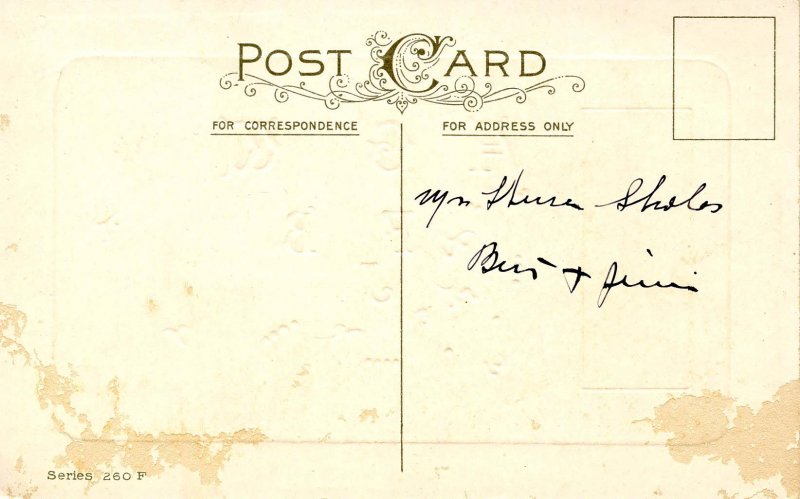 POST CARD
FOR CORRESPONDENCE
FOR ADDRESS ONLY
Mrs Sholes
Bert + Jimmie
Series 260 F